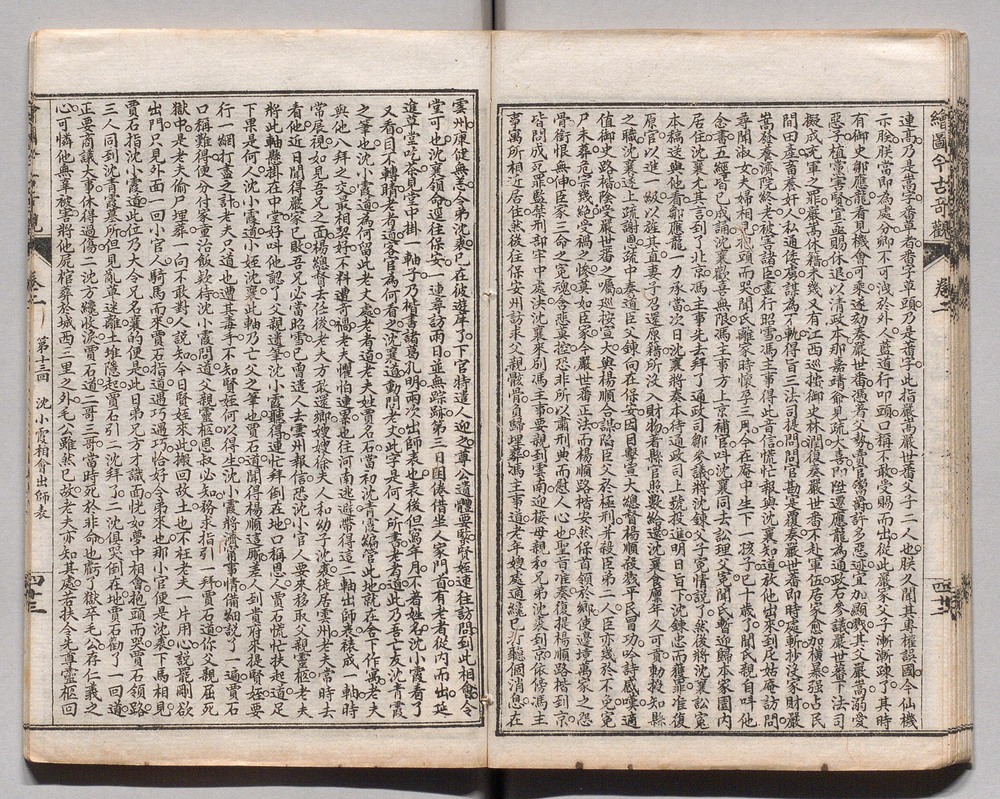 繪圖今古奇觀 卷二
連高乃是嵩字畨草者畨字草頭乃是蕃字此指嚴嵩嚴世蕃父子二人也朕久聞其專權誤國今仙機
示朕朕當即為處分卿不可洩於外人藍道行叩頭口稱不敢受賜而出從此嚴家父子漸漸疎了其時
有御史鄒應龍看見機會可乘遂劾奏嚴世蕃憑着父勢賣官鬻爵許多惡迹宜加顯戮其父嚴嵩溺愛
惡子植黨害賢宜亟賜休退以清政本那嘉靖爺見疏大喜即陞遷應龍為通政右參議嚴世蕃下法司
擬成充軍之罪嚴嵩休籍未幾又有江西巡按御史林潤復奏嚴世蕃不赴軍伍居家愈加橫暴强占民
間田產畜養奸人私通倭虜謀為不軌得旨三法司提問問官勘實覆奏嚴世蕃即時處斬抄沒家財嚴
嵩發養濟院終老被害諸臣盡行昭雪馮主事得此喜信慌忙報與沈襄知道放他出來到尼姑庵訪問
尋聞淑女夫婦相見抱頭而哭聞氏離家時懷孕三月今在庵中生下一孩子已十歲了聞氏親自呌他
念書五經皆已成誦沈襄歡喜無限馮主事方上京補官呌沈襄同去訟理父冤聞氏暫迎歸本家園內
居住沈襄尤其言到了北京馮主事先去拜了通政司鄒參議將沈鍊父子冤情說了然後將沈襄訟冤
本稿送與他看鄒應龍一力承當次日沈襄將奏本待通政司上號投進明日旨下沈鍊忠而獲罪准復
原官以進一級以旌其直妻子召還原籍所沒入財物者縣官照數給還沈襄食廩年久可貢勅授知縣
之職沈襄遂上疏謝恩疏中奏道臣父鍊向在保安因目擊宣大總督楊順殺戮平民冒功吟詩感嘆適
值御史路楷陰受嚴世蕃之囑巡按宣大與楊順合謀陷臣父於極刑并殺臣弟二人臣亦幾於不免冤
尸未葬危宗幾絕受禍之慘莫如臣家今嚴世蕃正法而楊順路楷安然保首領於鄉使邊境萬家之怨
骨銜恨無伸臣家三命之冤魂含悲莫控恐非所以肅刑典而慰人心也聖旨准奏復提楊順路楷到京
皆問成死罪監禁刑部牢中處決沈襄來別馮主事要親到雲南迎接母親和兄弟沈袠到京依傍馮主
事寓所相近居住然後往保安州訪求父親骸骨負歸埋葬馮主事道老年嫂處適纔已打聽個消息在
雲州康健無恙令弟沈袠已在彼遊庠了下官特遣人迎之尊公遺體要緊賢姪速往訪問到此相會令
堂可也沈襄領命逕往保安一連尋訪兩日並無踪跡第三日因倦借坐人家門首有老者從內而出延
進草堂吃茶見堂中掛一軸子乃楷書諸葛孔明兩次出師表也表後但寫年月不著姓名沈小霞看了
又看目不轉睛老者道客官為何看之沈襄道動問老丈此字是何人所書老者道此乃吾亡友沈青霞
之筆也沈小霞道為何留此老丈處老者道老夫姓賈名石當初沈青霞編管此地就在舍下作寓老夫
與他八拜之交最相契好不料遭奇禍老夫懼怕連累也往河南逃避帶得這二軸出師表裱成一軸時
常展視如見吾兄之面楊總督去任後老夫方敢還鄉嫂嫂徐夫人和幼子沈袠徙居雲州老夫常時去
看他近日聞得嚴家已敗吾兄必當昭雪已曾遣人去雲州報信恐沈小官人要來移取父親靈柩老夫
將此軸懸掛在中堂好呌他認了父親遺筆沈小霞聽得連忙拜倒在地口稱恩人賈石慌忙扶起道足
下果是何人沈小霞道小姪沈襄此軸乃亡父之筆也賈石道聞得楊順這厮差人到貴府來提賢姪要
行一網打盡之計老夫只道也遭其毒手不知賢姪何以得生沈小霞將濟甯事情備細說了一遍賈石
口稱難得便分付家童治飯欵待沈小霞問道父親靈柩恩叔必知務求指引一拜賈石道你父親屈死
獄中是老夫偷尸埋葬一向不敢對人說知今日賢姪來此搬回故土也不枉老夫一片用心說罷剛欲
出門只見外面一回小官人騎馬而來賈石指道遇巧遇巧恰好令弟來也那小官便是沈袠下馬相見
賈石指沈小霞道此位乃大令兄名襄的便是此日弟兄方才識面恍如夢中相會抱頭而哭賈石領路
三人同到沈青霞墓所但見亂草迷離土堆隱起賈石引二沈拜了二沈俱哭倒在地賈石勸了一回道
正要商議大事休得過傷二沈方纔收淚賈石道二哥三哥當時死於非命也虧了獄卒毛公存仁義之
心可憐他無辜被害將他屍棺葬於城西三里之外毛公雖然已故老夫亦知其處若扶令先尊靈柩回
卷二
第十三回 沈小霞相會出師表
四十三